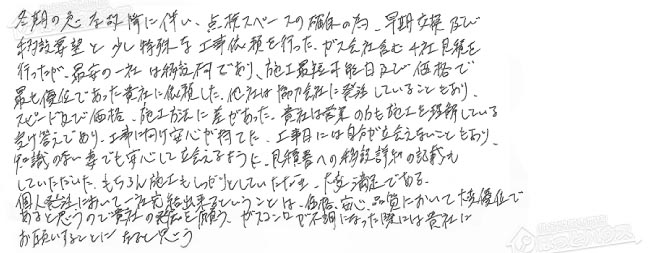 冬期の急な故障に伴い、点検スペースの確保の為、早期交換及び
移設要望と少し特殊な工事依頼を行った。ガス会社含む4社見積を
行ったが、最安の一社は移設不可であり、施工最短可能日及び価格で
最も優位であった貴社に依頼した。他社は協力会社に発注していることもあり、
スピード及び価格、施工方法に差があった。貴社は営業の方も施工を理解している
受け答えであり、工事に向け安心が持てた。工事日には自分が立会えないこともあり、
知識のない妻でも安心して立会えるように、見積書への移設詳細の記載も
していただいた。もちろん施工もしっかりとしていただき、大変満足である。
個人発注において一社完結出来るということは、価格、安心、品質において大変優位で
あると思うので貴社の発展を願う。ガスコンロが不調になった際には貴社に
お願いすることになると思う